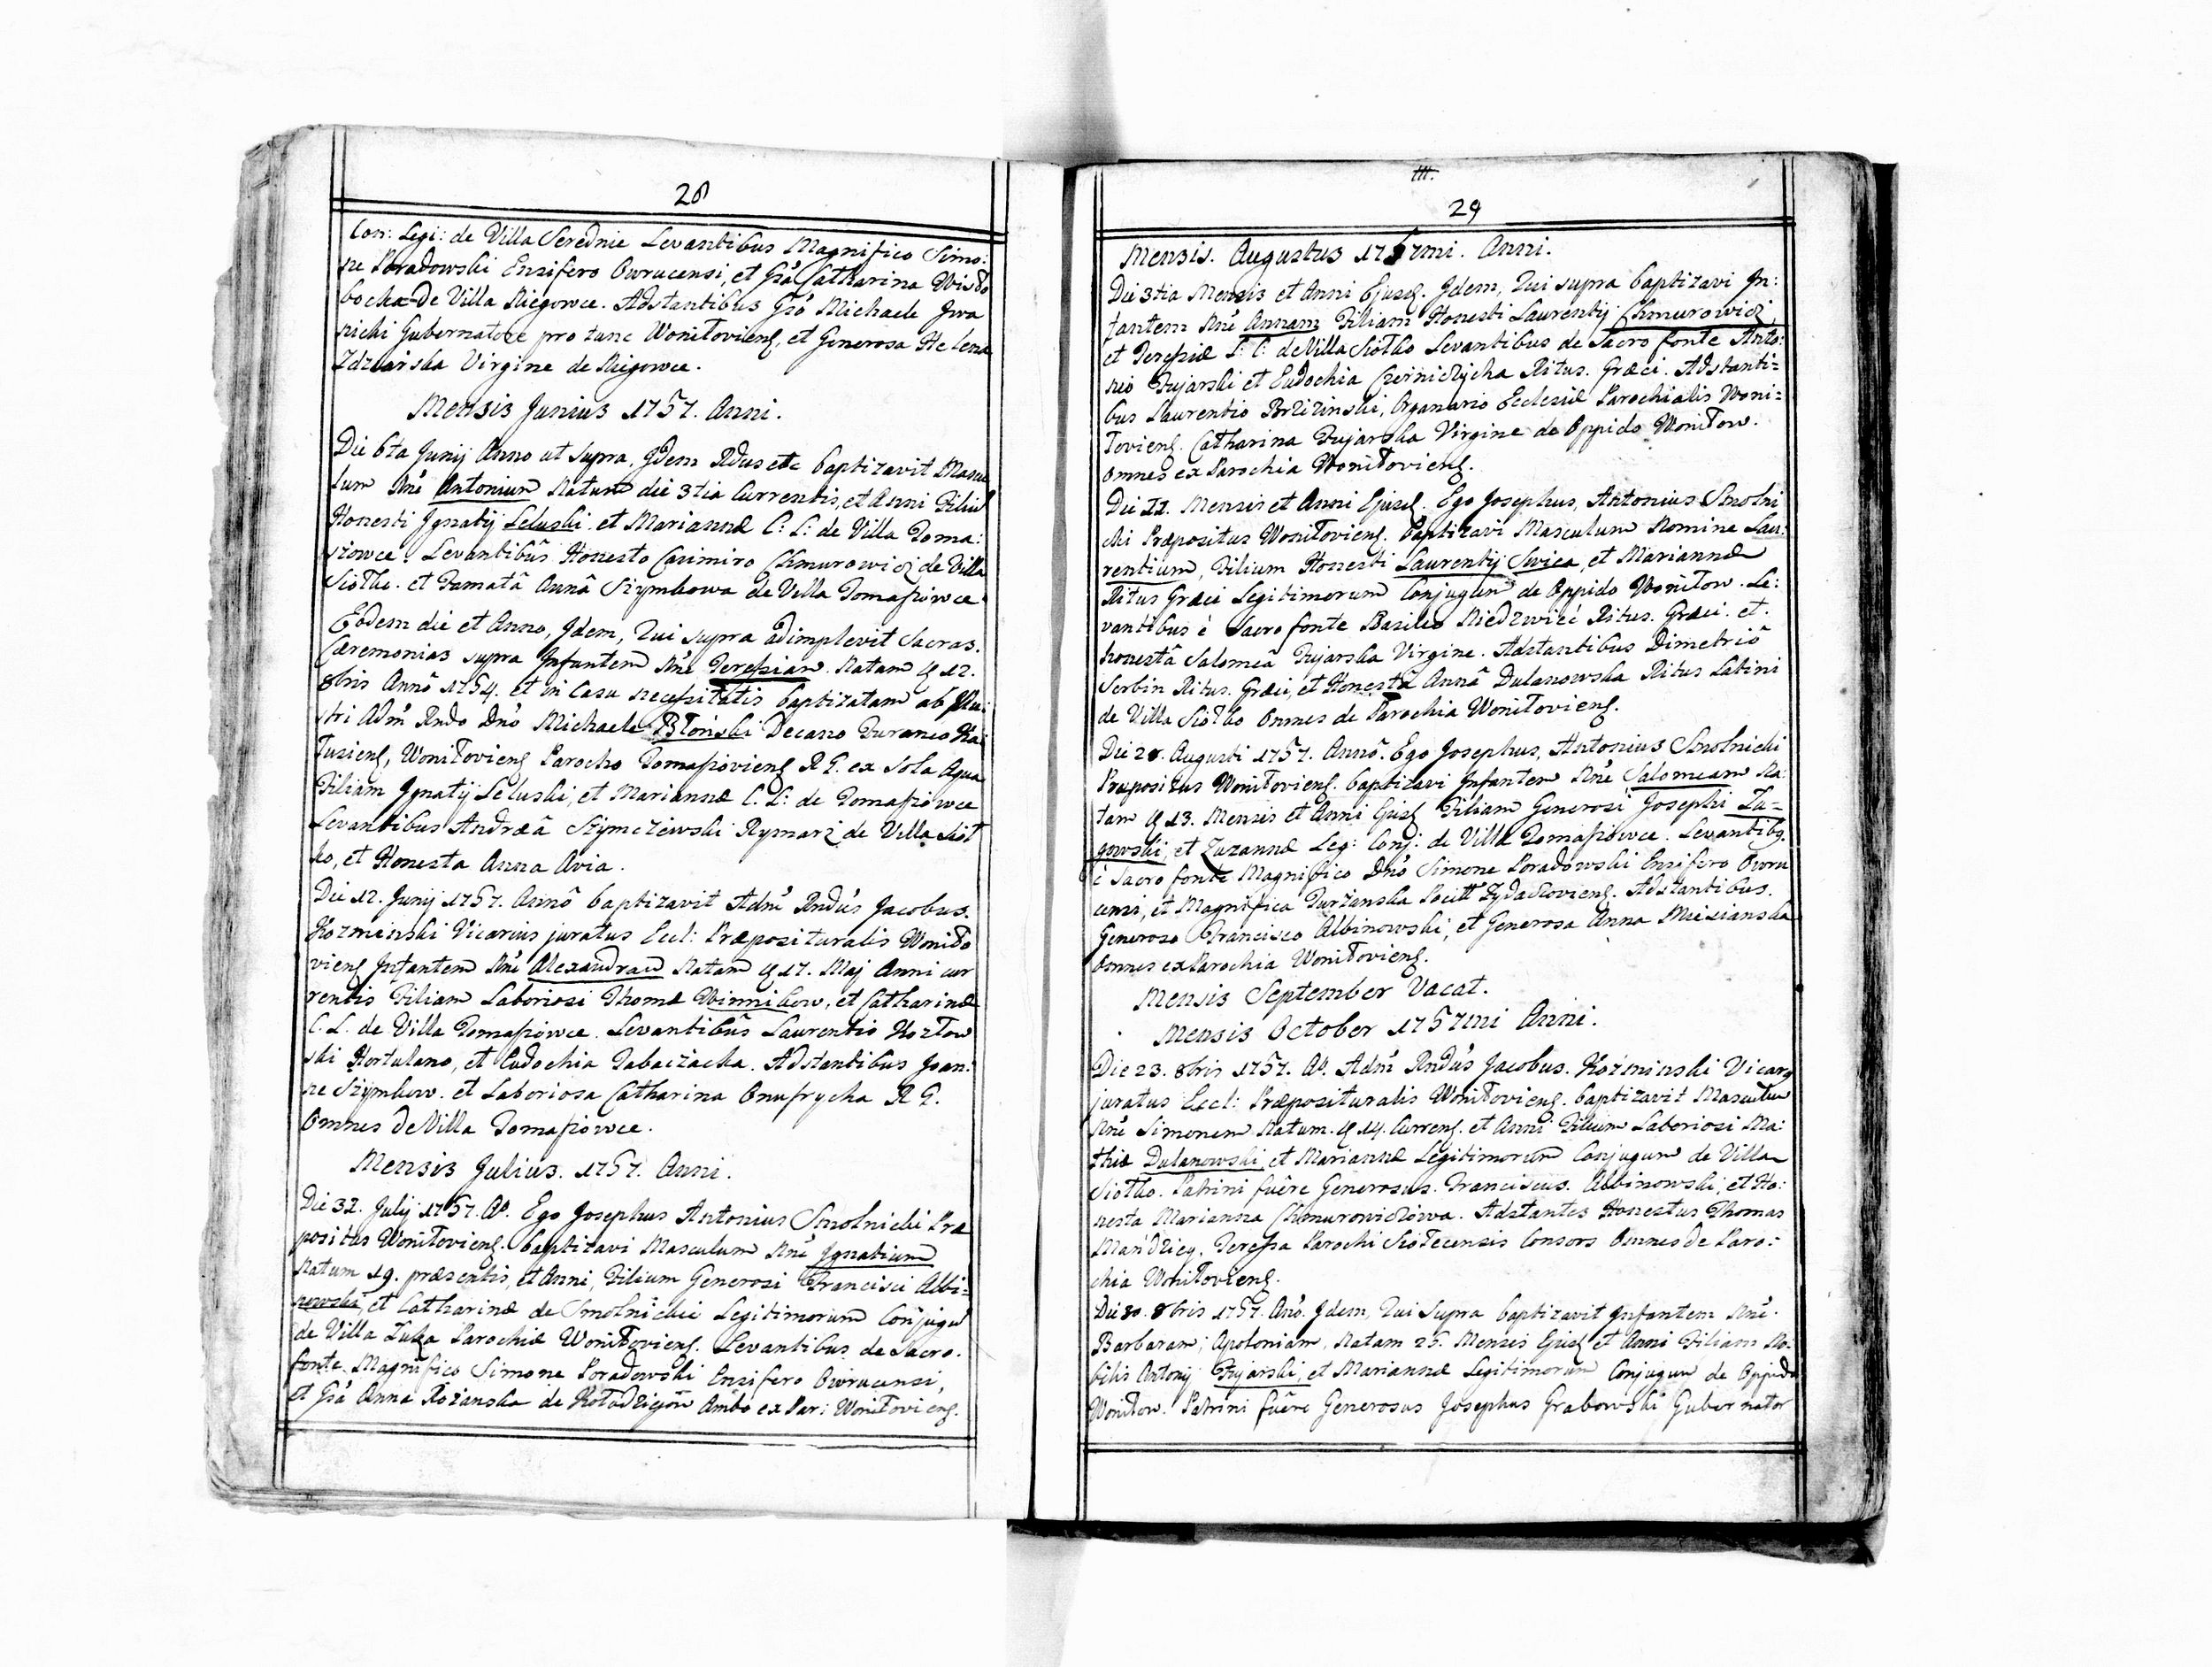 28
Con: Legi: de Villa Serednie Levantibus Magnifico Simo:
ne Poradowski Ensifero Owrucensi, et Gsâ Catharina Wisło
bocka de Villa Niegowce. Adstantibus Gsô Michaele Jwa
nicki Gubernatore pro tunc Woniłovieng, et Generosa Helena
Zdzianska Virgine de Niegowce.
Mensis Junius 1757. Anni.
Die 6ta Junij Anno ut supra, Jdem Rdus etc baptizavit Mascu
lum Nnê Antonium Natum die 3tia Currentis, et Anni Filiû
Honesti Jgnatij Leluski et Mariannæ C: L: de Villa Toma:
szowce. Levantibus Honesto Casimiro Chmurowicz de Villa
Siołko. et Famatâ Annâ Szymkowa de Villa Tomaszowce
Eodem die et Anno, Jdem, Qui supra adimplevit Sacras.
Cæremonias supra Jnfantem Nnê Teressiam. Natam ɋ 12.
8bris Annô 1754. et in Casu necessitatis baptizatam ab Jllu:
stri Adm̃ Rndo Dnô Michaele Błoński Decano Furanco Ka
łusieng, Woniłovieng Parocho Tomaszovieng R G. ex sola Aqua
Filiam Jgnatij Leluski, et Mariannæ C. L: de Tomaszowce
Levantibus Andræâ Szymczewski Rymarz de Villa Sioł
ko, et Honesta Anna Avia.
Die 12. Junij 1757. Annô baptizavit Adm̃ Rndûs Jacobus.
Kozminski Vicarius juratus Eccl: Præposituralis Woniło
vieng Jnfantem Nnê Alexandram Natam ɋ 17. Maj Anni cur
rentis Filiam Laboriosi Thomæ Winnikow, et Catharinæ
C. L. de Villa Tomaszowce. Levantibus Laurentio Kozłow
ski Hortulano, et Eudochia Tabaczacka. Adstantibus Joan:
ne Szymkow. et Laboriosa Catharina Onufrycha R G.
Omnes de Villa Tomaszowce.
Mensis Julius. 1757. Anni.
Die 31. Julij 1757. Aº. Ego Josephus Antonius Smolnicki Præ
positus Woniłovieng. baptizavi Masculum Nnê Jgnatium
Natum 19. præsentis, et Anni, Filium Generosi Francisci Albi=
nowski, et Catharinæ de Smolnickie Legitimorum Conjugû
de Villa Łuka Parochiæ Woniłovieng. Levantibus de Sacro.
fonte. Magnifico Simone Poradowski Ensifero Owrucensi,
et Gsâ Anna Rozanska de Kołodzieiow Ambo ex Par: Woniłovieng.
III.
29
Mensis. Augustus 1757mi. Anni.
Die 3tia Mensis et Anni Ejusd. Jdem, Qui supra baptizavi Jn:
fantem Nnê Annam Filiam Honesti Laurentij Chmurowicz,
et Teressiæ L: C: de Villa Siołko Levantibus de Sacro fonte Anto:
nio Fujarski et Eudochia Czerniczycha Ritus. Græci. Adstanti=
bus Laurentio Brzizinski, Organario Ecclesiæ Parochialis Woni=
łovieng. Catharina Fujarska Virgine de Oppido Woniłow.
Omnes ex Parochia Woniłovieng.
Die 11. Mensis et Anni Ejusd. Ego Josephus, Antonius Smolni
cki Præpositus Woniłovieng. baptizavi Masculum Nomine Lau:
rentium, Filium Honesti Laurentij Swica, et Mariannæ
Ritus Græci Legitimorum Conjugum de Oppido Woniłow. Le:
vantibus è Sacro fonte Basilio Niedzwieć Ritus. Græci. et.
honestâ Salomeâ Fujarska Virgine. Adstantibus Dimetriô
Serbin Ritus. Græci, et Honestâ Annâ Dulanowska Ritus Latini
de Villa Siołko Omnes de Parochia Woniłovieng.
Die 28. Augusti 1757. Annô. Ego Josephus, Antonius Smolnicki
Præpositus Woniłovieng. baptizavi Jnfantem Nnê Salomeam Na:
tam ɋ 13. Mensis et Anni Ejusd Filiam Generosi Josephi Łu=
gowski, et Zuzannæ Leg: Conj: de Villa Tomaszowce. Levantibꝫ.
è Sacro fonte Magnifico Dnô Simone Poradowski Ensifero Owru
censi, et Magnifica Turzanska Żydaczovieng. Adstantibus.
Generoso Francisco Albinowski, et Generosa Anna
Omnes ex Parochia Woniłovieng.
Mensis September Vacat.
Mensis October 1757mi Anni.
Die 23. 8bris 1757. Aº. Adm̃ Rndûs Jacobus. Kozminski Vicarꝫ
juratus Eccl: Præposituralis Woniłovieng. baptizavit Masculum
Nnê Simonem Natum. ɋ 14. Curreng. et Anni Filium Laboriosi Ma:
thiæ Dulanowski, et Mariannæ Legitimorum Conjugum de Villa
Siołko. Patrini fuêre Generosus. Franciscus. Albinowski, et Ho:
nesta Marianna Chmurowiczowa. Adstantes Honestus Thomas
Mandzieg. Teressa Parochi Siołecensis Consors Omnes de Paro:
chia Woniłovieng.
Die 30. 8bris 1757. Anô. Jdem, Qui Supra baptizavit Jnfantem Nnê.
Barbaram, Apoloniam, Natam 25. Mensis Ejusd et Anni Filiam No:
bilis Antonij Fujarski, et Mariannæ Legitimorum Conjugum de Oppido
Woniłow. Patrini fuêre Generosus Josephus Grabowski Gubernator